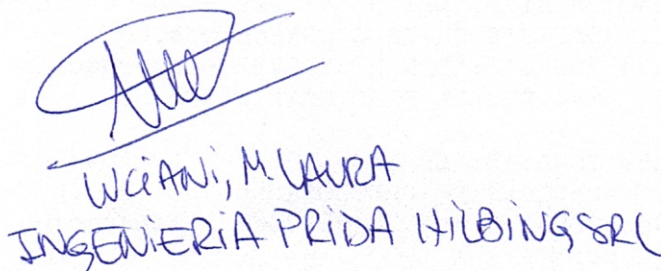 LUCIANI, M. LAURA
INGENIERIA PRIDA HILBING SRL